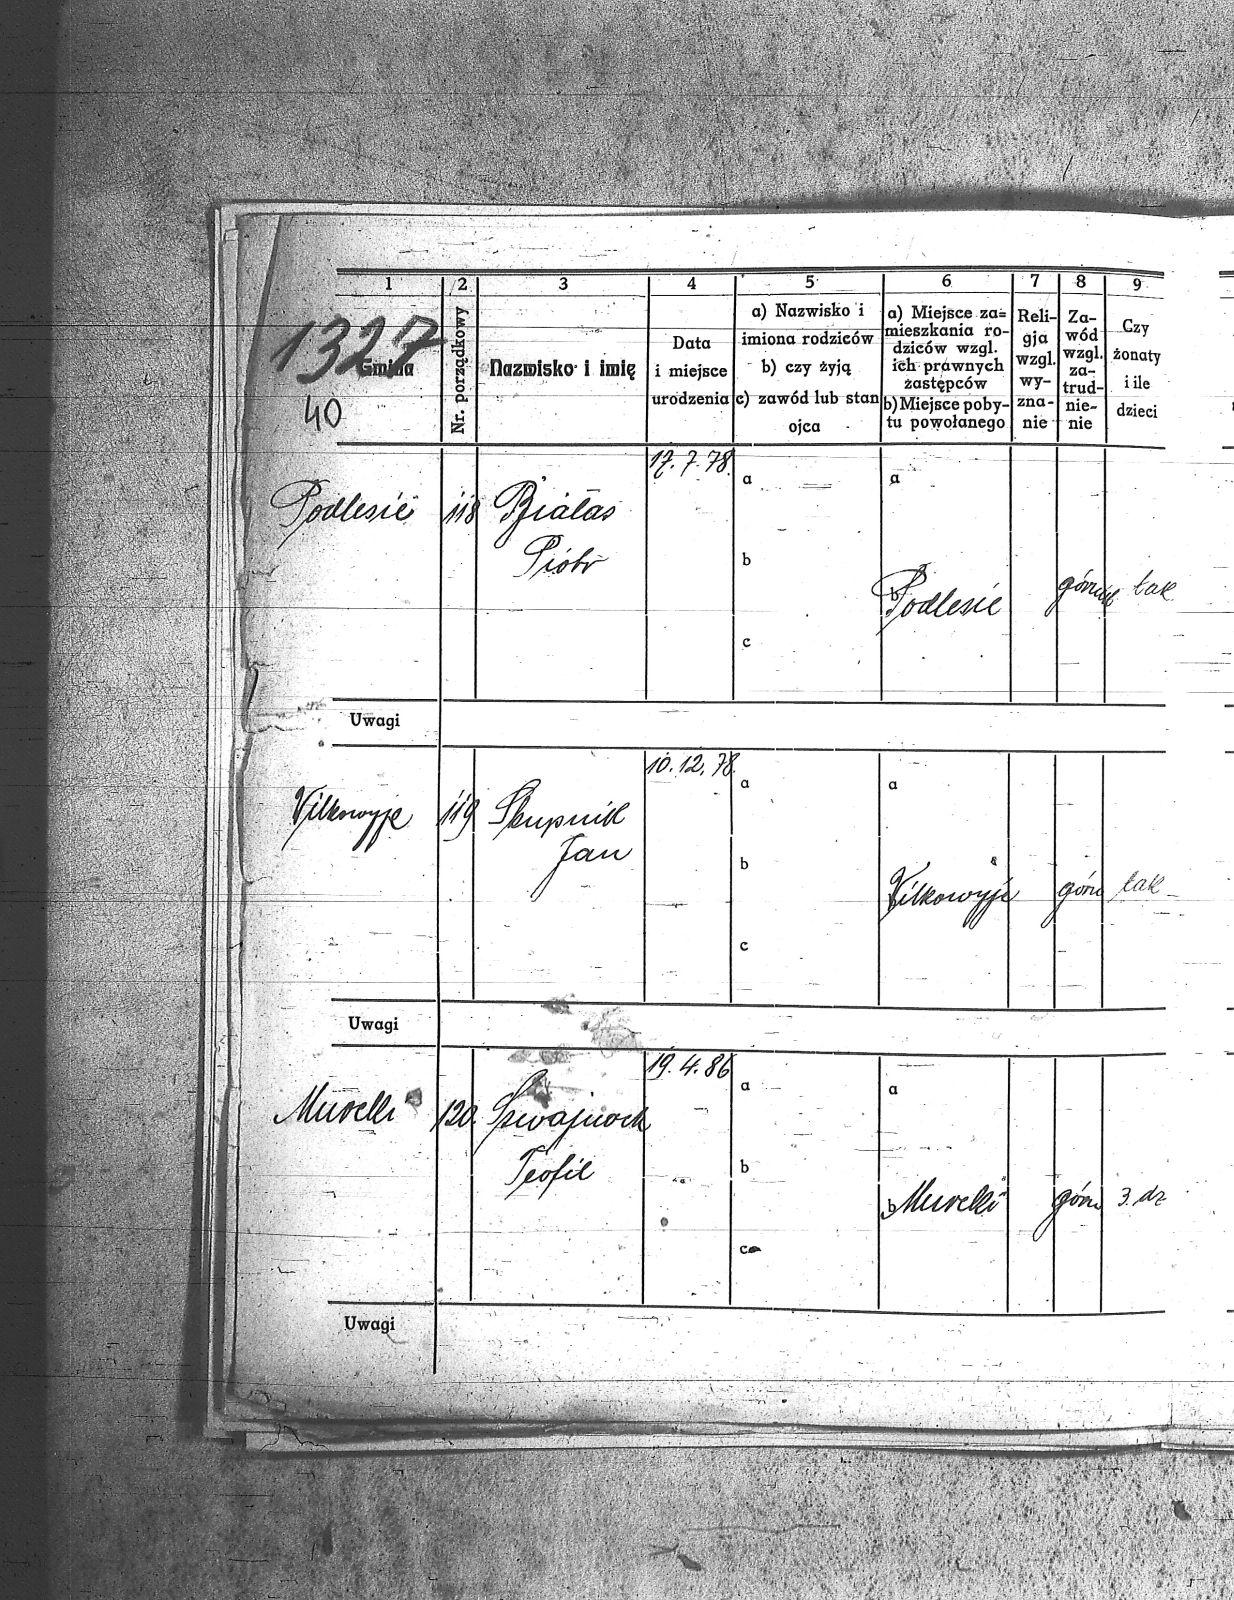 1 2 3 4 5 6 7 8 9
1327
40
Gmina
Nr. porządkowy
Nazwisko i imię
Data
i miejsce
urodzenia
a) Nazwisko i
imiona rodziców
b) czy żyją
c) zawód lub stan
ojca
a) Miejsce za=
mieszkania ro-
dziców wzgl.
ich prawnych
zastępców
b) Miejsce poby-
tu powołanego
Reli-
gja
wzgl.
wy-
zna-
nie
Za-
wód
wzgl.
za-
trud-
nie-
nie
Czy
żonaty
i ile
dzieci
17. 7. 78.
a a
Podlesie 118 Białas
Piotr
b
b Podlesie górnik tak
c
Uwagi
10. 12. 78.
a a
Wilkowyje 119 Skupnik
Jan
b
Wilkowyje górn tak
c
Uwagi
19. 4. 86
a a
Murcki 120. Szwajnoch
Teofil
b
b Murcki górn 3 dz
c
Uwagi